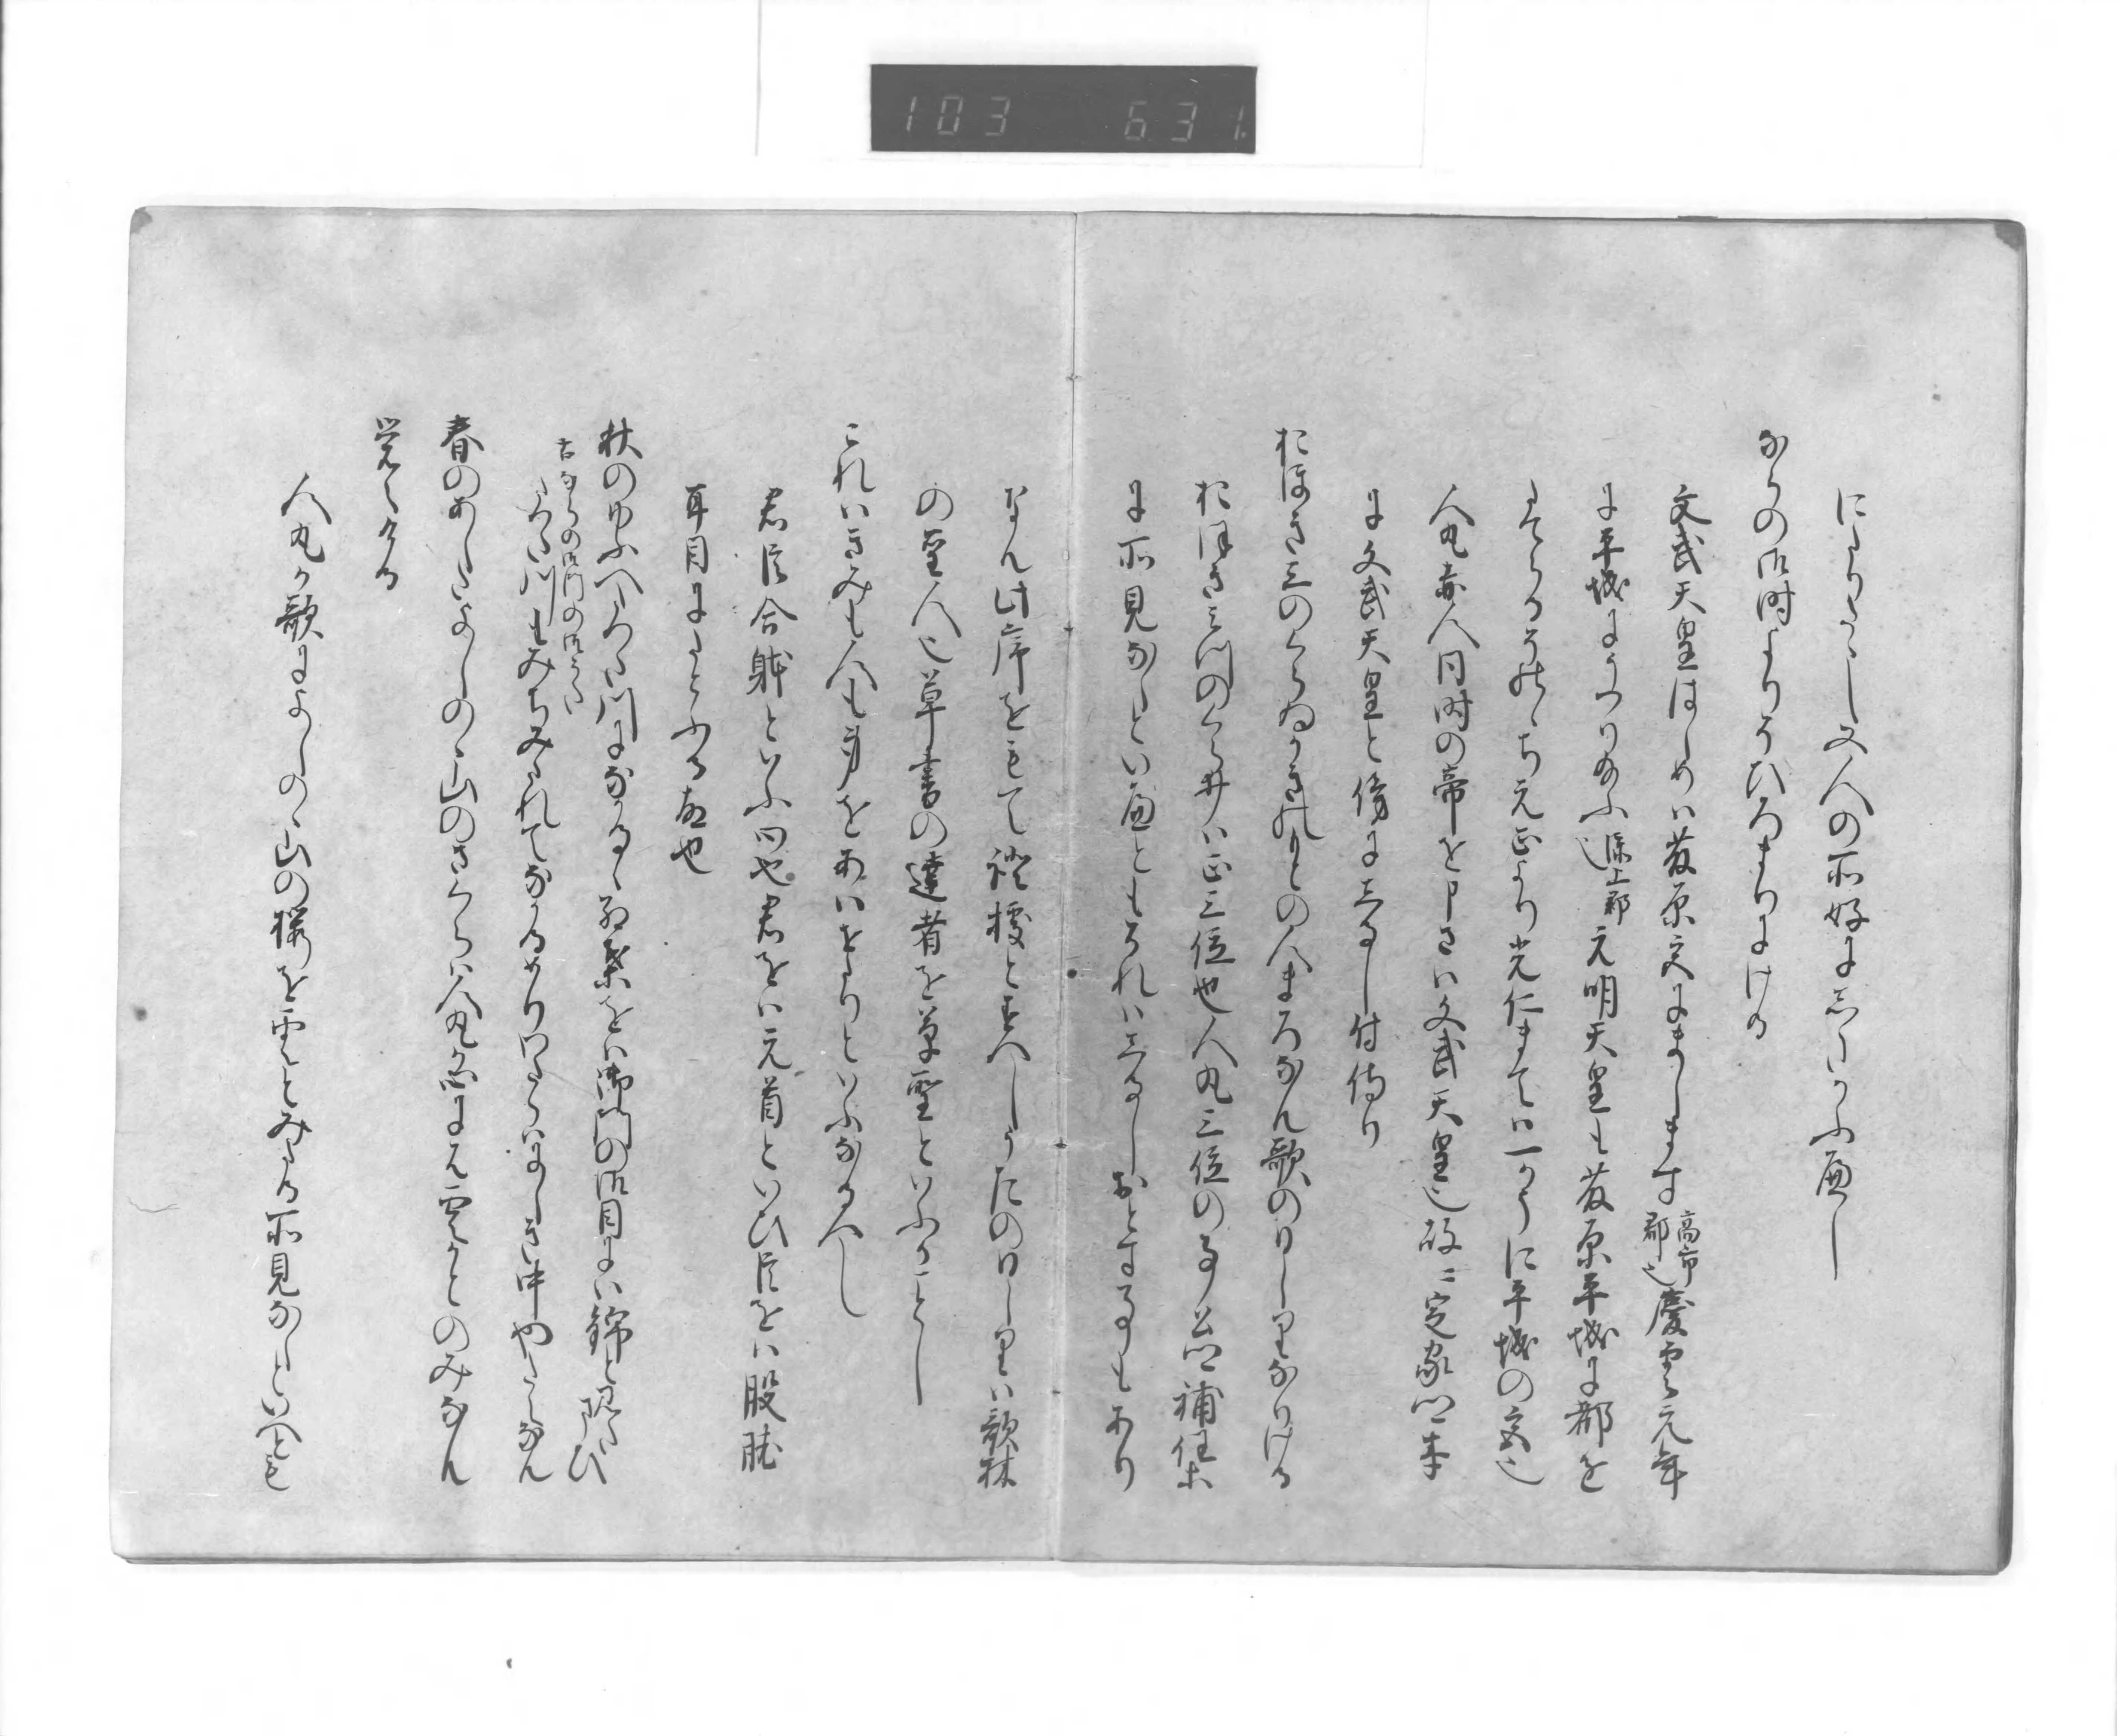 103 631
ならの御時よりそひろまりにける
文武天皇はしめは藤原宮にまします高市郡也慶雲元年
に平城にうつり給ふ添上郡也元明天皇も藤原平城に都を
元正より光仁まては一かうに平城の宮也
人丸赤人同時の帝を申さは文武天皇也故ニ定家卿本
に文武天皇と傍にしるし付侍り
おほき三のくらゐかきのもとの人まろなん歌のひしりなりける
おほき三のくらゐは正三位也人丸三位の事公卿補任等
に所見なしといへともこれにしるしおとす事もあり
なん此序をもて證據とすへしうたのひしりは歌林
の聖人也草書の達者を草聖といふかことし
これはきみも人も身をあはせたりといふなるへし
君臣合躰といふ心也君をは元首といひ臣をは股肱
耳目にたとふる故也
秋のゆふへたつた川になかるゝ紅葉をは御門の御目には錦と見たまひ
古ならの御門の御うた
たつた川もみちみたれてなかるめりわたらはにしき中やたえなん
春のあしたよしのゝ山のさくらは人丸か心には雲かとのみなん
覚えける
人丸か歌によしのゝ山の桜を雲とみたる所見なしといへとも